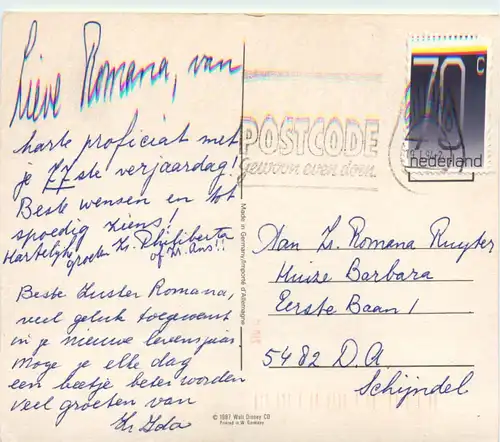 Lieve Romana, van
harte proficiat met
je 77ste verjaardag!
Beste wensen en tot
spoedig ziens!
Hartelijk
groeten Zr. Philiberta
of Zr. Ans!!
Beste Zuster Romana,
veel geluk toegewenst
in je nieuwe levensjaar
moge je elke dag
een beetje beter worden
veel groeten van
Zr Ida
Made in Germany/Importé d'Allemagne
© 1987 Walt Disney CO
Printed in W. Germany
POSTCODE
Gewoon even doen.
70 c
nederland
Aan Zr. Romana Ruyter
Huize Barbara
Eerste Baan 1
5482 D.A
Schijndel